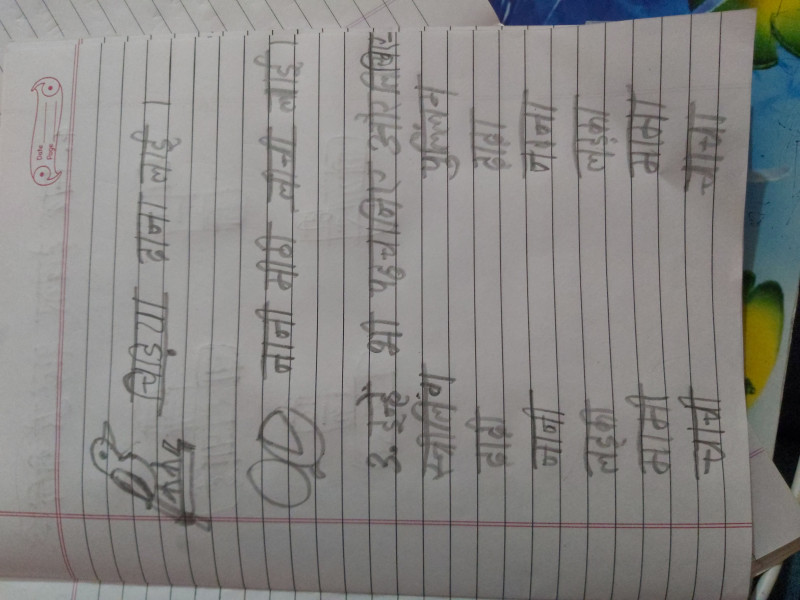 Date
Page
चिड़िया दाना लाई।
नानी मीठी लीची लाई।
3. इन्हें भी पहचानिए और लिखिए-
स्त्रीलिंग पुल्लिंग
दादी दादा
नानी नाना
लड़की लड़का
मामी मामा
चाची चाचा